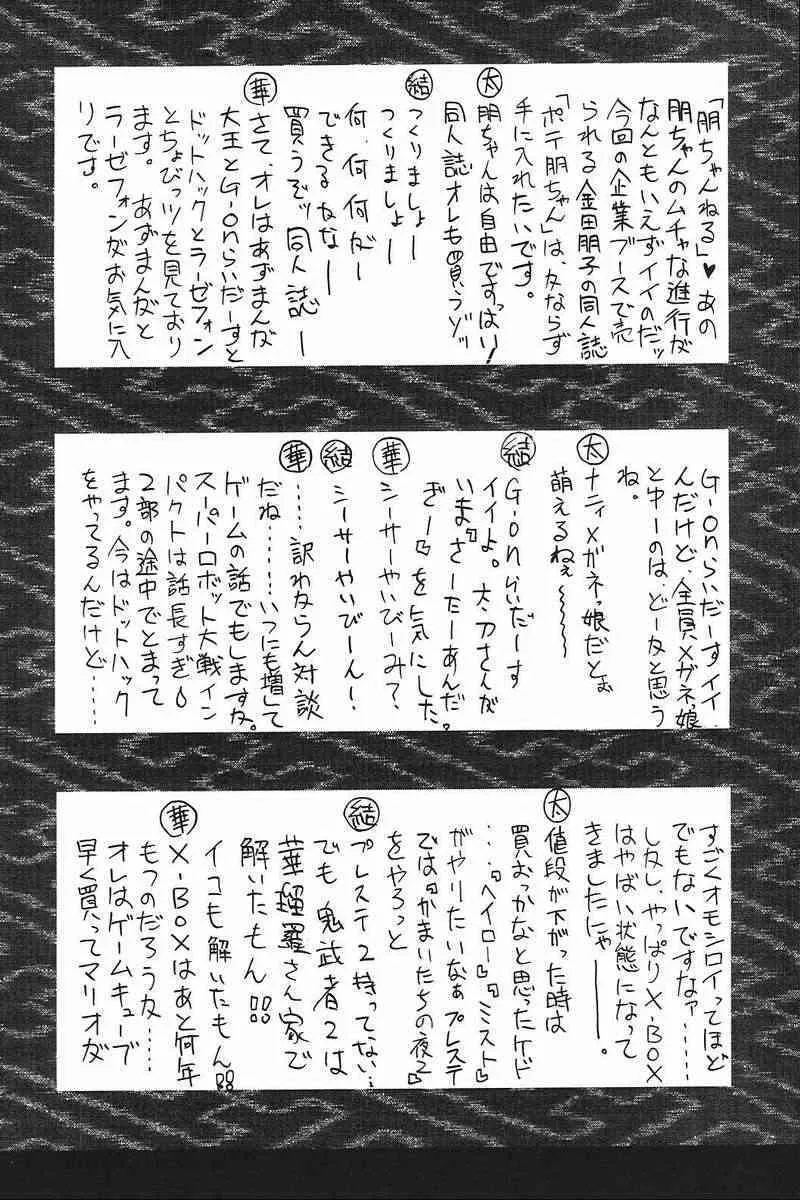 「朋ちゃんねる」♥あの
朋ちゃんのムチャな進行が
なんともいえずイイのだッ
今回の企業ブースで売
られる金田朋子の同人誌
「ポテ朋ちゃん」は、かならず
手に入れたいです。
太 朋ちゃんは自由ですっはい!
同人誌オレも買うゾッ
結 つくりましょー
つくりましょー
何、何、何がー
できるかなー
買うぞッ同人誌ー
華 さて、オレはあずまんが
大王とG-onらいだーすと
ドットハックとラーゼフォン
とちょびッツを見ており
ます。あずまんがと
ラーゼフォンがお気に入
リです。
G-onらいだーすイイ
んだけど、全員メガネっ娘
と中一のは、どーかと思う
ね。
太 ナティメガネっ娘だとぉ
萌えるねぇ〜〜〜〜〜
結 G-onらいだーす
イイよ。太刀さんが
いま『さーたーあんだ
ぎー』を気にした。
華 シーサーやいびーみて?
結 シーサーやいびーん!
華 ……訳わからん対談
だね………いつにも増して
ゲームの話でもしますか。
スーパーロボット大戦イン
パクトは話長すぎ
2部の途中でとまって
ます。今はドットハック
をやってるんだけど……
すごくオモシロイってほど
でもないですなァ……
しかし、やっぱりX-BOX
はやばい状態になって
きましたにゃ――。
太 値段が下がった時は
買おっかなと思ったケド
…『ヘイロー』『ミスト』
がやりたいなぁプレステ
では『かまいたちの夜2』
をやろっと
結 プレステ2持ってない…
でも鬼武者2は
華瑠羅さん家で
解いたもん!!
イコも解いたもん!!
華 X-BOXはあと何年
もつのだろうか……
オレはゲームキューブ
早く買ってマリオが